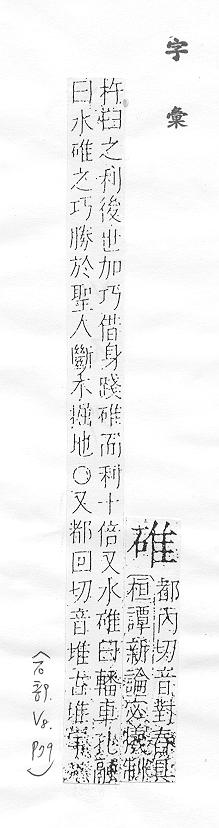 字彙
碓
都內切音對舂具
桓譚新論宓犧制
杵臼之利後世加巧借身踐碓而利十倍又水碓曰轓車孔融
曰水碓之巧勝於聖人斷木掘地○又都回切音堆古堆字
(石部 V8.